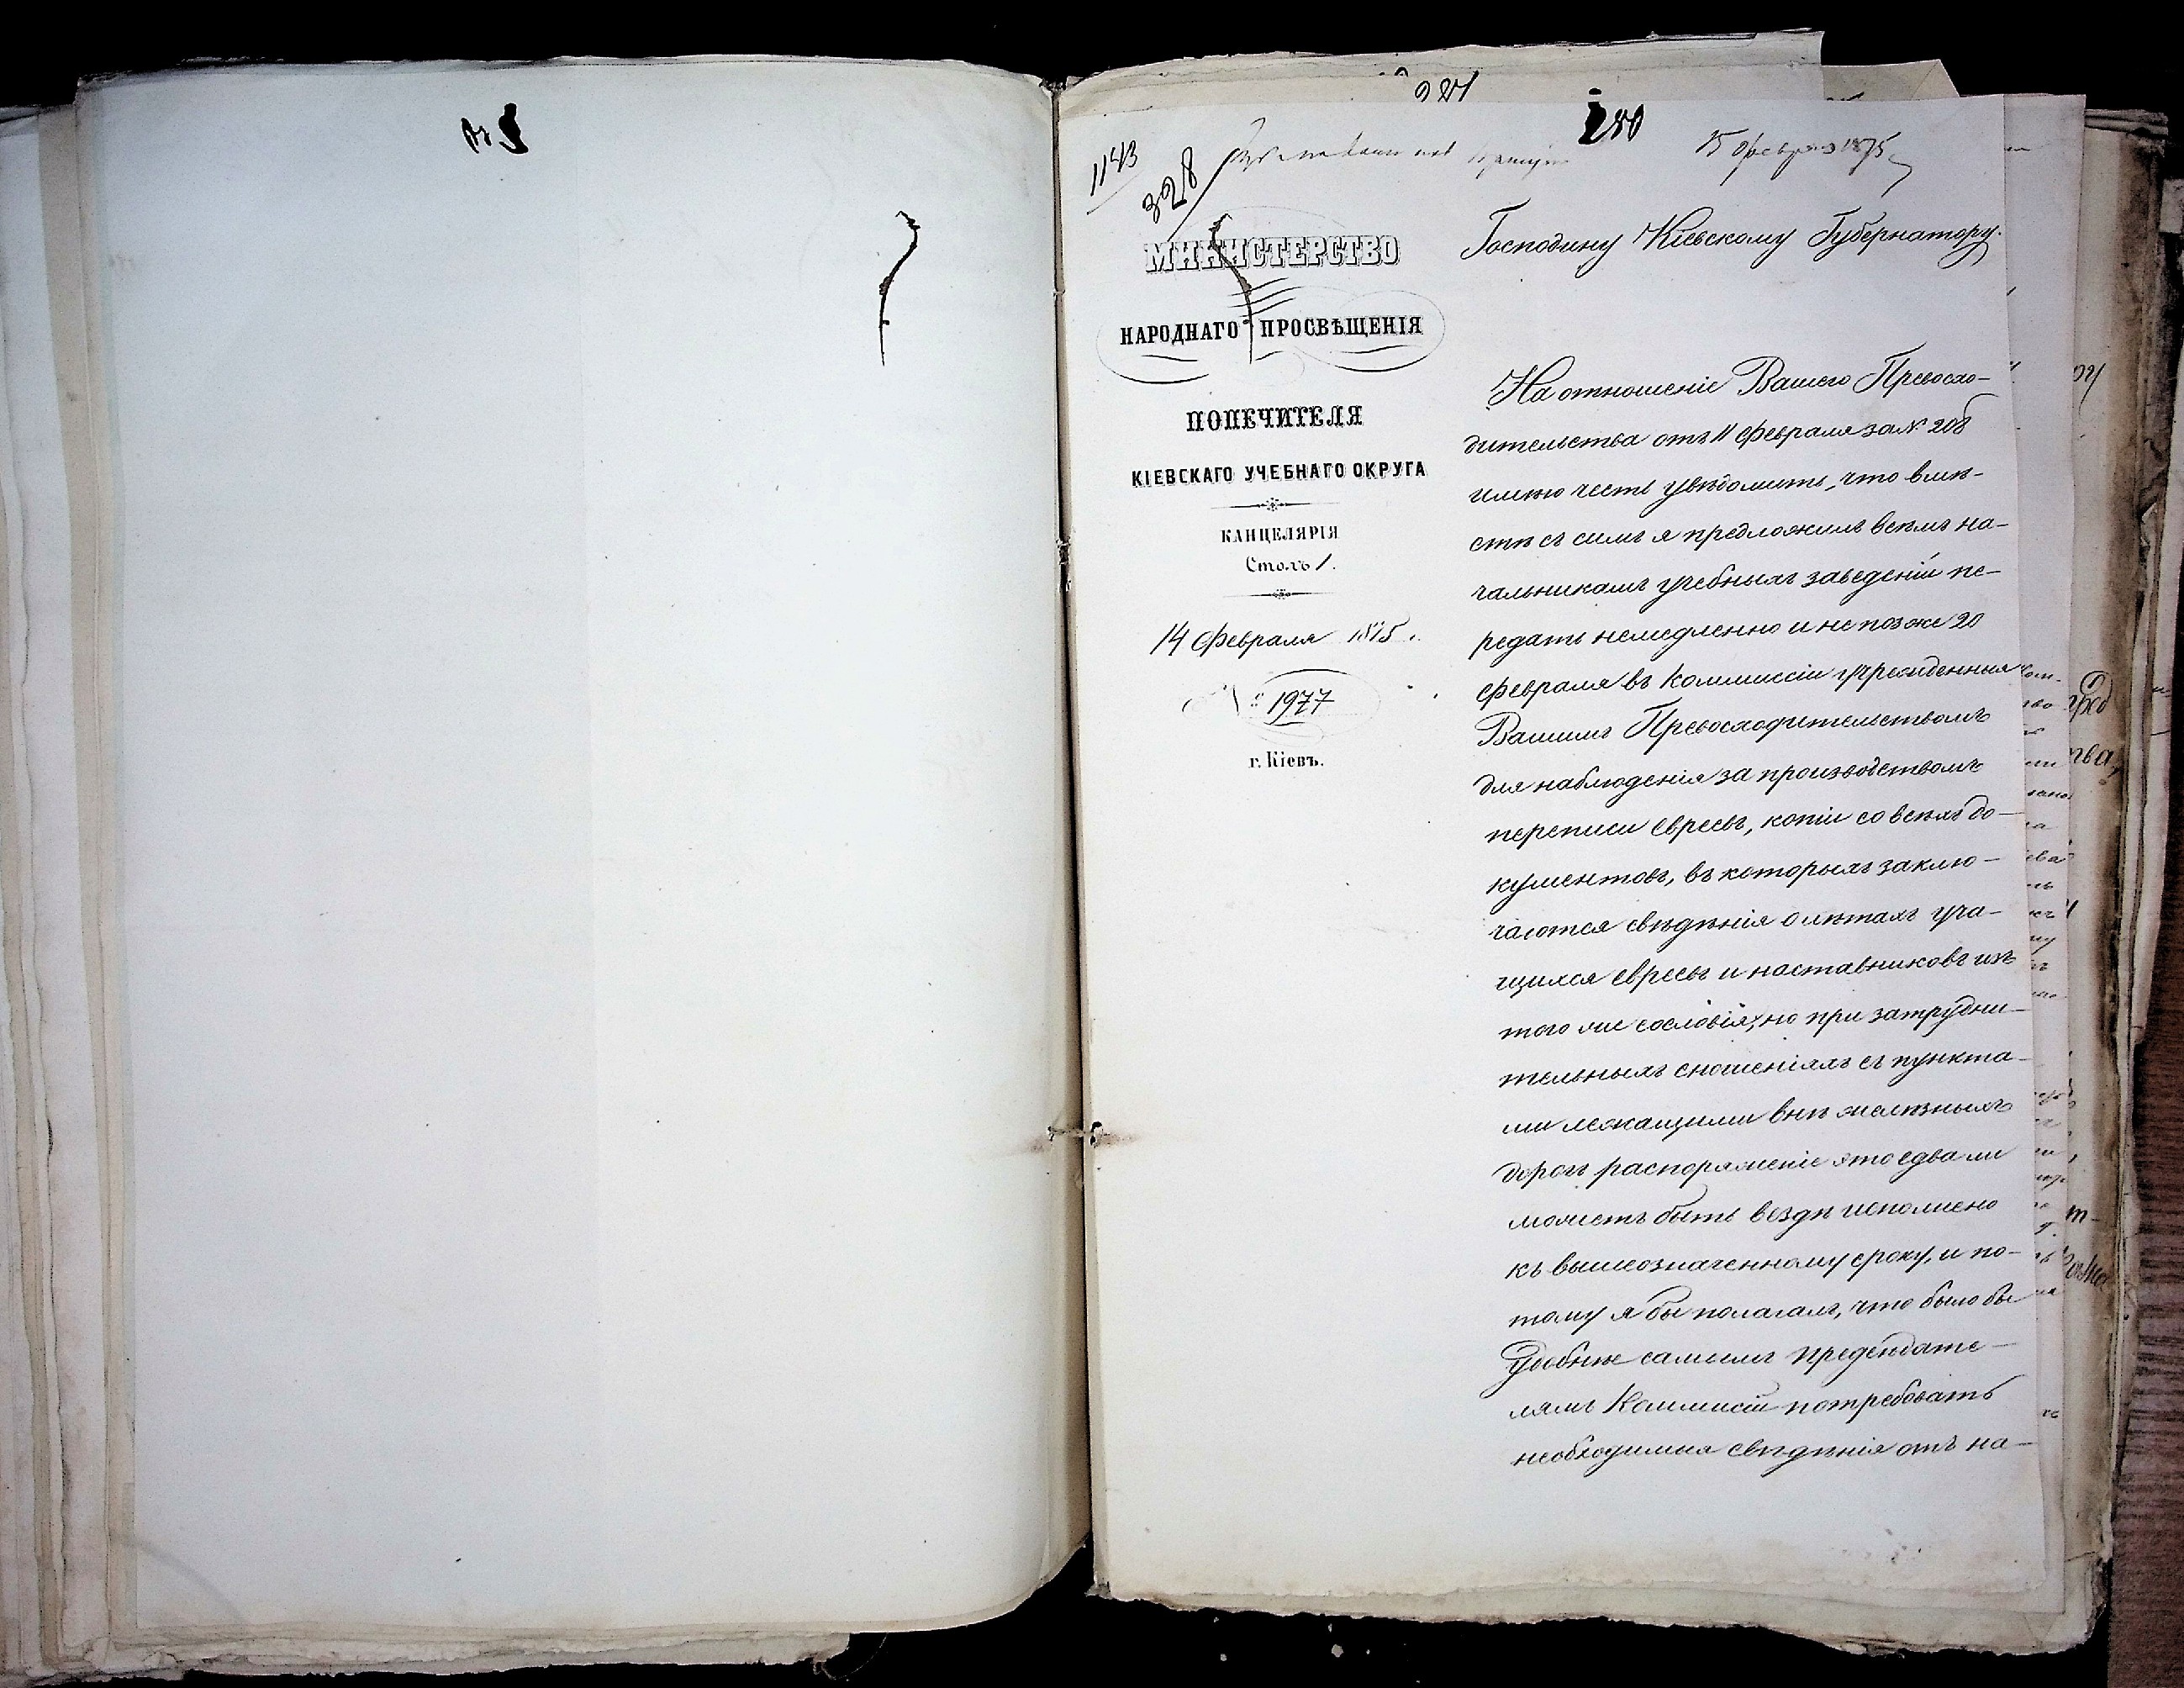 1143
328
280
15 февраля 1875
МИНИСТЕРСТВО
НАРОДНАГО ПРОСВѢЩЕНІЯ
ПОПЕЧИТЕЛЯ
КІЕВСКАГО УЧЕБНАГО ОКРУГА
КАНЦЕЛЯРІЯ
Столъ 1.
14 Февраля 1875 г.
№ 1977
г. Кіевъ.
Господину Кіевскому Губернатору.
На отношеніе Вашего Превосхо-
дительства отъ 11 февраля за № 208
имѣю честь увѣдомить, что вмѣ-
стѣ съ симъ я предложилъ всѣмъ на-
чальникамъ учебныхъ заведеній пе-
редать немедленно и не позже 20
февраля въ Коммиссіи учрежденныя
Вашимъ Превосходительствомъ
для наблюденія за производствомъ
переписи евреевъ, копіи со всѣхъ до-
кументовъ, въ которыхъ заклю-
чаются свѣдѣнія о лѣтахъ уча-
щихся евреевъ и наставниковъ изъ
того же сословія; но при затрудни-
тельныхъ сношеніяхъ съ пункта-
ми лежащими внѣ желѣзныхъ
дорогъ распоряженіе это едва ли
можетъ быть вездѣ исполнено
къ вышеозначенному сроку, и по-
тому я бы полагалъ, что было бы
удобнѣе самимъ предсѣдате-
лямъ Коммисій потребовать
необходимыя свѣдѣнія отъ на-